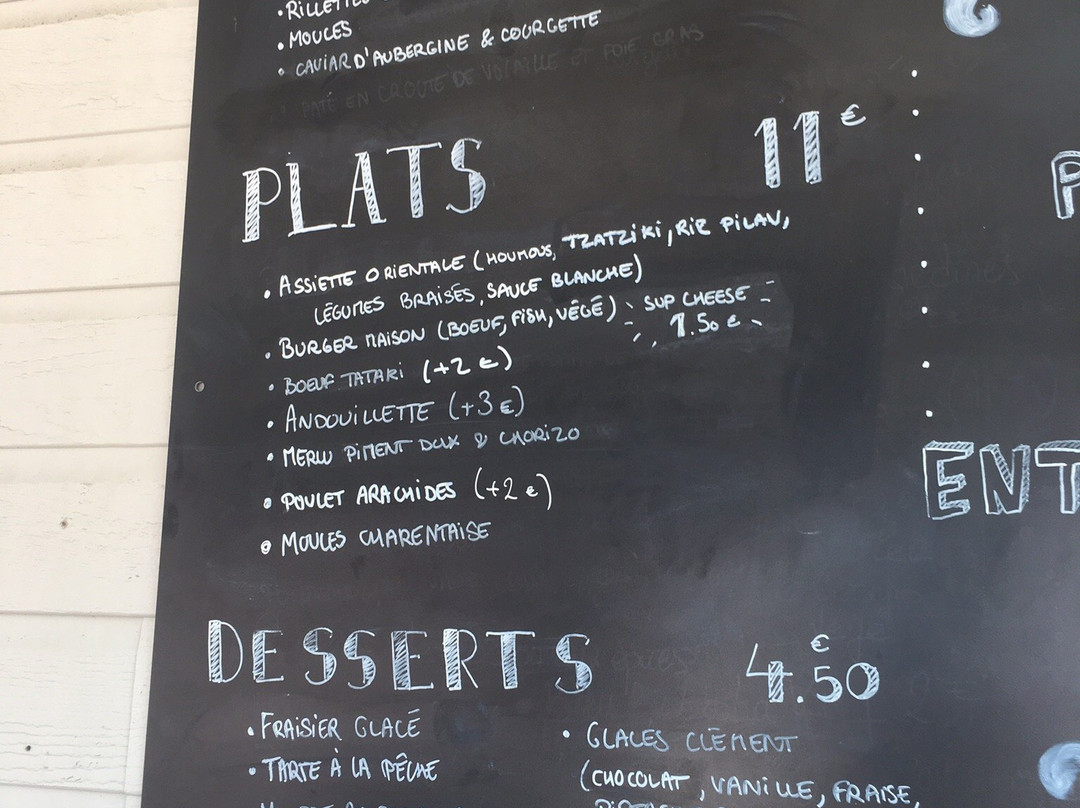 • RILLETTES
• MOULES
• CAVIAR D'AUBERGINE & COURGETTE
PATÉ EN CROUTE DE VOLAILLE ET FOIE GRAS
PLATS 11€
• ASSIETTE ORIENTALE (HOUMOUS, TZATZIKI, RIZ PILAV,
LÉGUMES BRAISÉS, SAUCE BLANCHE)
• BURGER MAISON (BOEUF, FISH, VÉGÉ) SUP CHEESE
1.50€
• BOEUF TATAKI (+2€)
• ANDOUILLETTE (+3€)
• MERLU PIMENT DOUX & CHORIZO
• POULET ARACHIDES (+2€)
• MOULES CHARENTAISE
ENT
DESSERTS 4.50€
• FRAISIER GLACÉ
• TARTE À LA PÊCHE
• GLACES CLÉMENT
(CHOCOLAT, VANILLE, FRAISE,